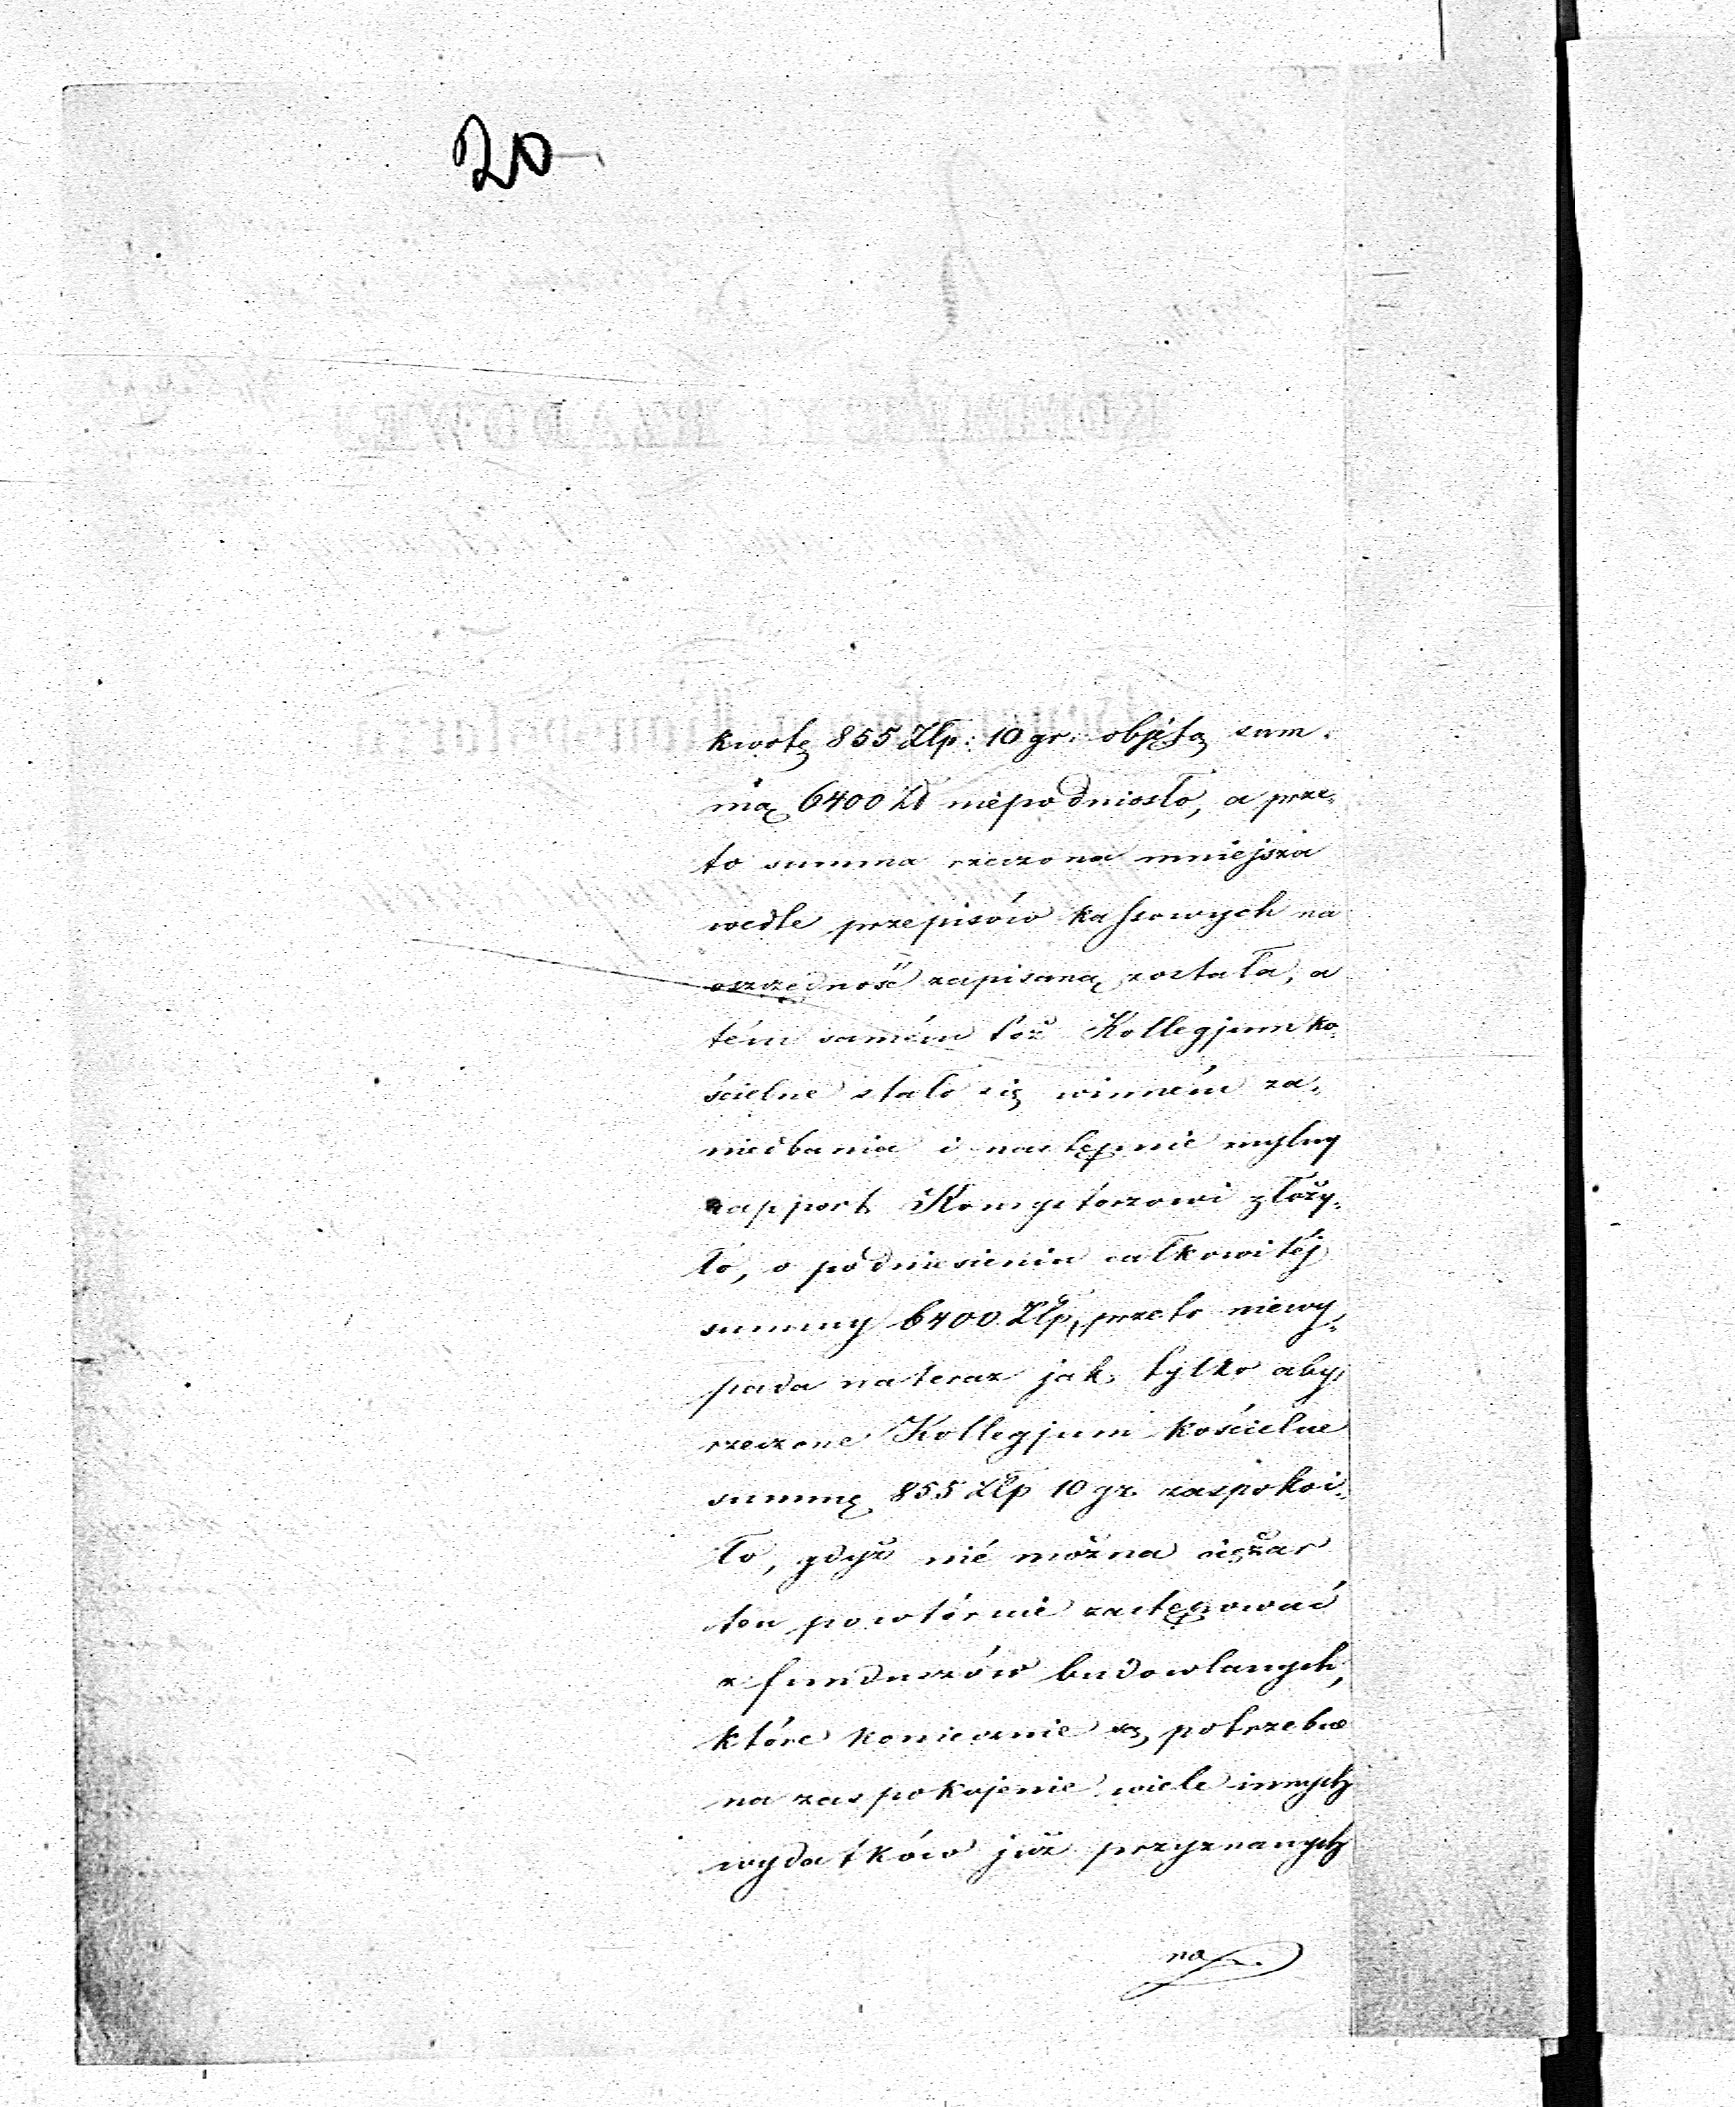 20
kwotę 855 Złp: 10 gr: objętą sum-
mą 6400 Zł niepodniosło, a prze-
to summa rzeczona mniejsza
wedle przepisów kassowych na
oszczędność zapisaną została, a
tém samém toż Kollegjum ko-
ścielne stało się winném za-
niedbania i następnie mylny
rapport Konsystorzowi złoży-
ło, o podniesieniu całkowitéj
summy 6400 Złp, przeto niewy-
pada nateraz jak tylko aby
rzeczone Kollegjum kościelne
summę 855 Złp 10 gr. zaspokoi-
ło, gdyż nié można ciężar
ten powtórnie zastępować
z funduszów budowlanych,
które koniecznie są potrzebne
na zaspokojenie wiele innych
wydatków już przyznanych
na